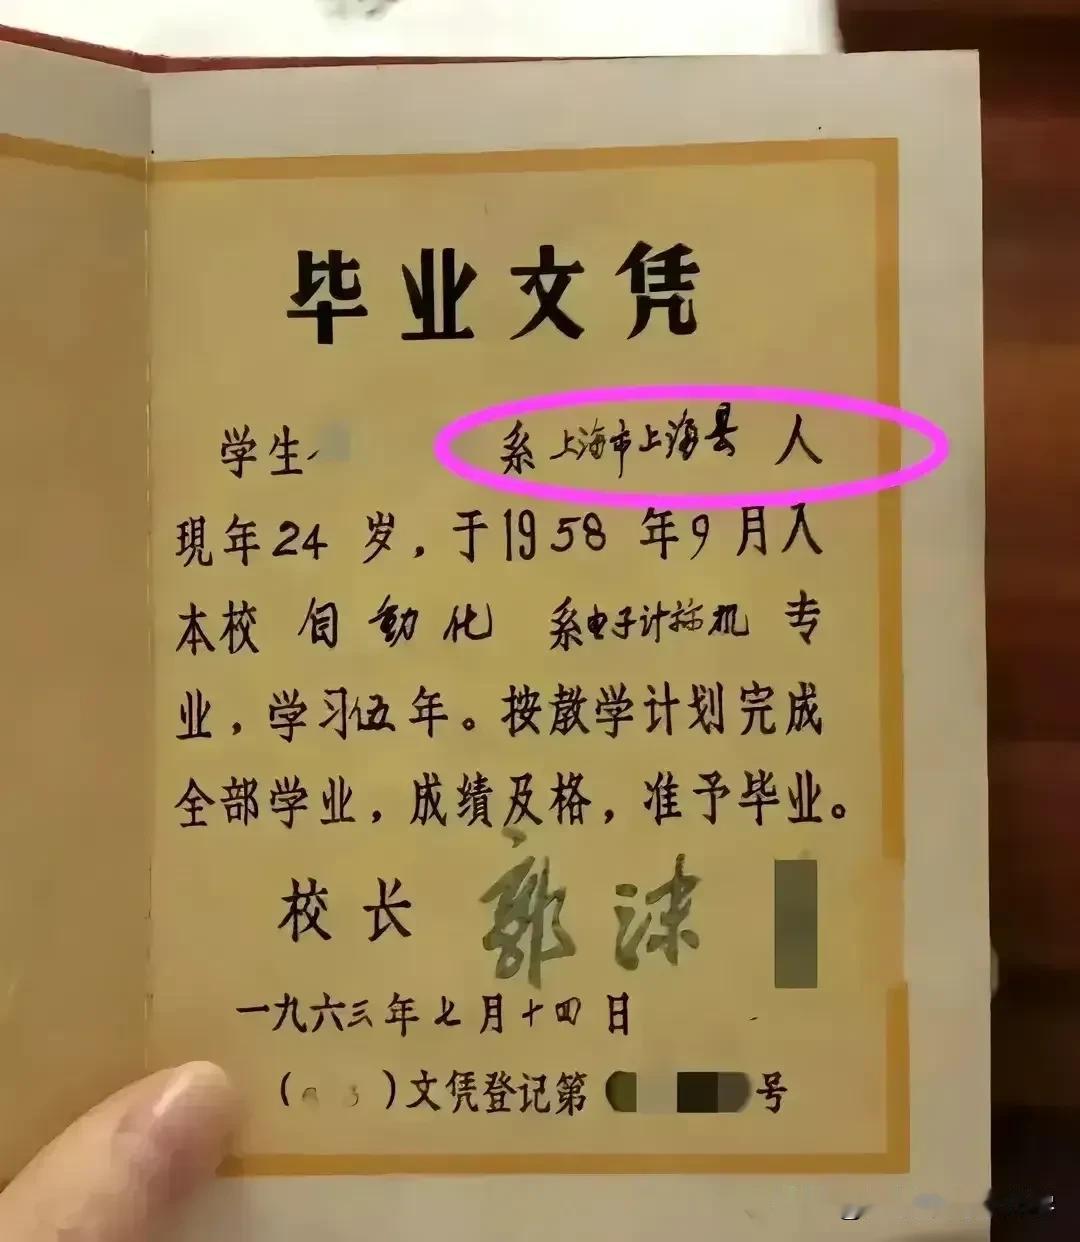 毕业文凭
学生 系上海市上海县人
現年24岁，于1958年9月入
本校自動化系电子计祘机专
业，学习伍年。按教学计划完成
全部学业，成绩及格，准予毕业。
校长 郭沫
一九六三年七月十四日
( 3 )文凭登记第 号